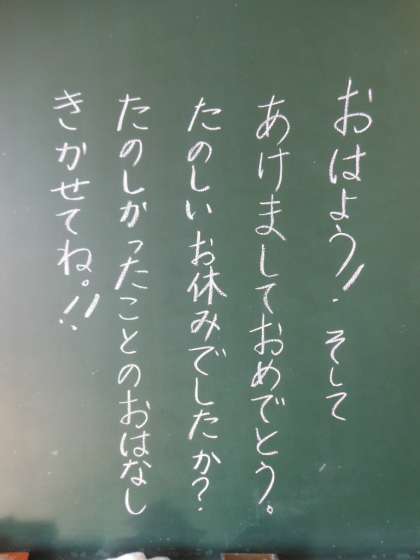 おはよう!. そして
あけましておめでとう。
たのしいお休みでしたか?
たのしかったことのおはなし
きかせてね。!!